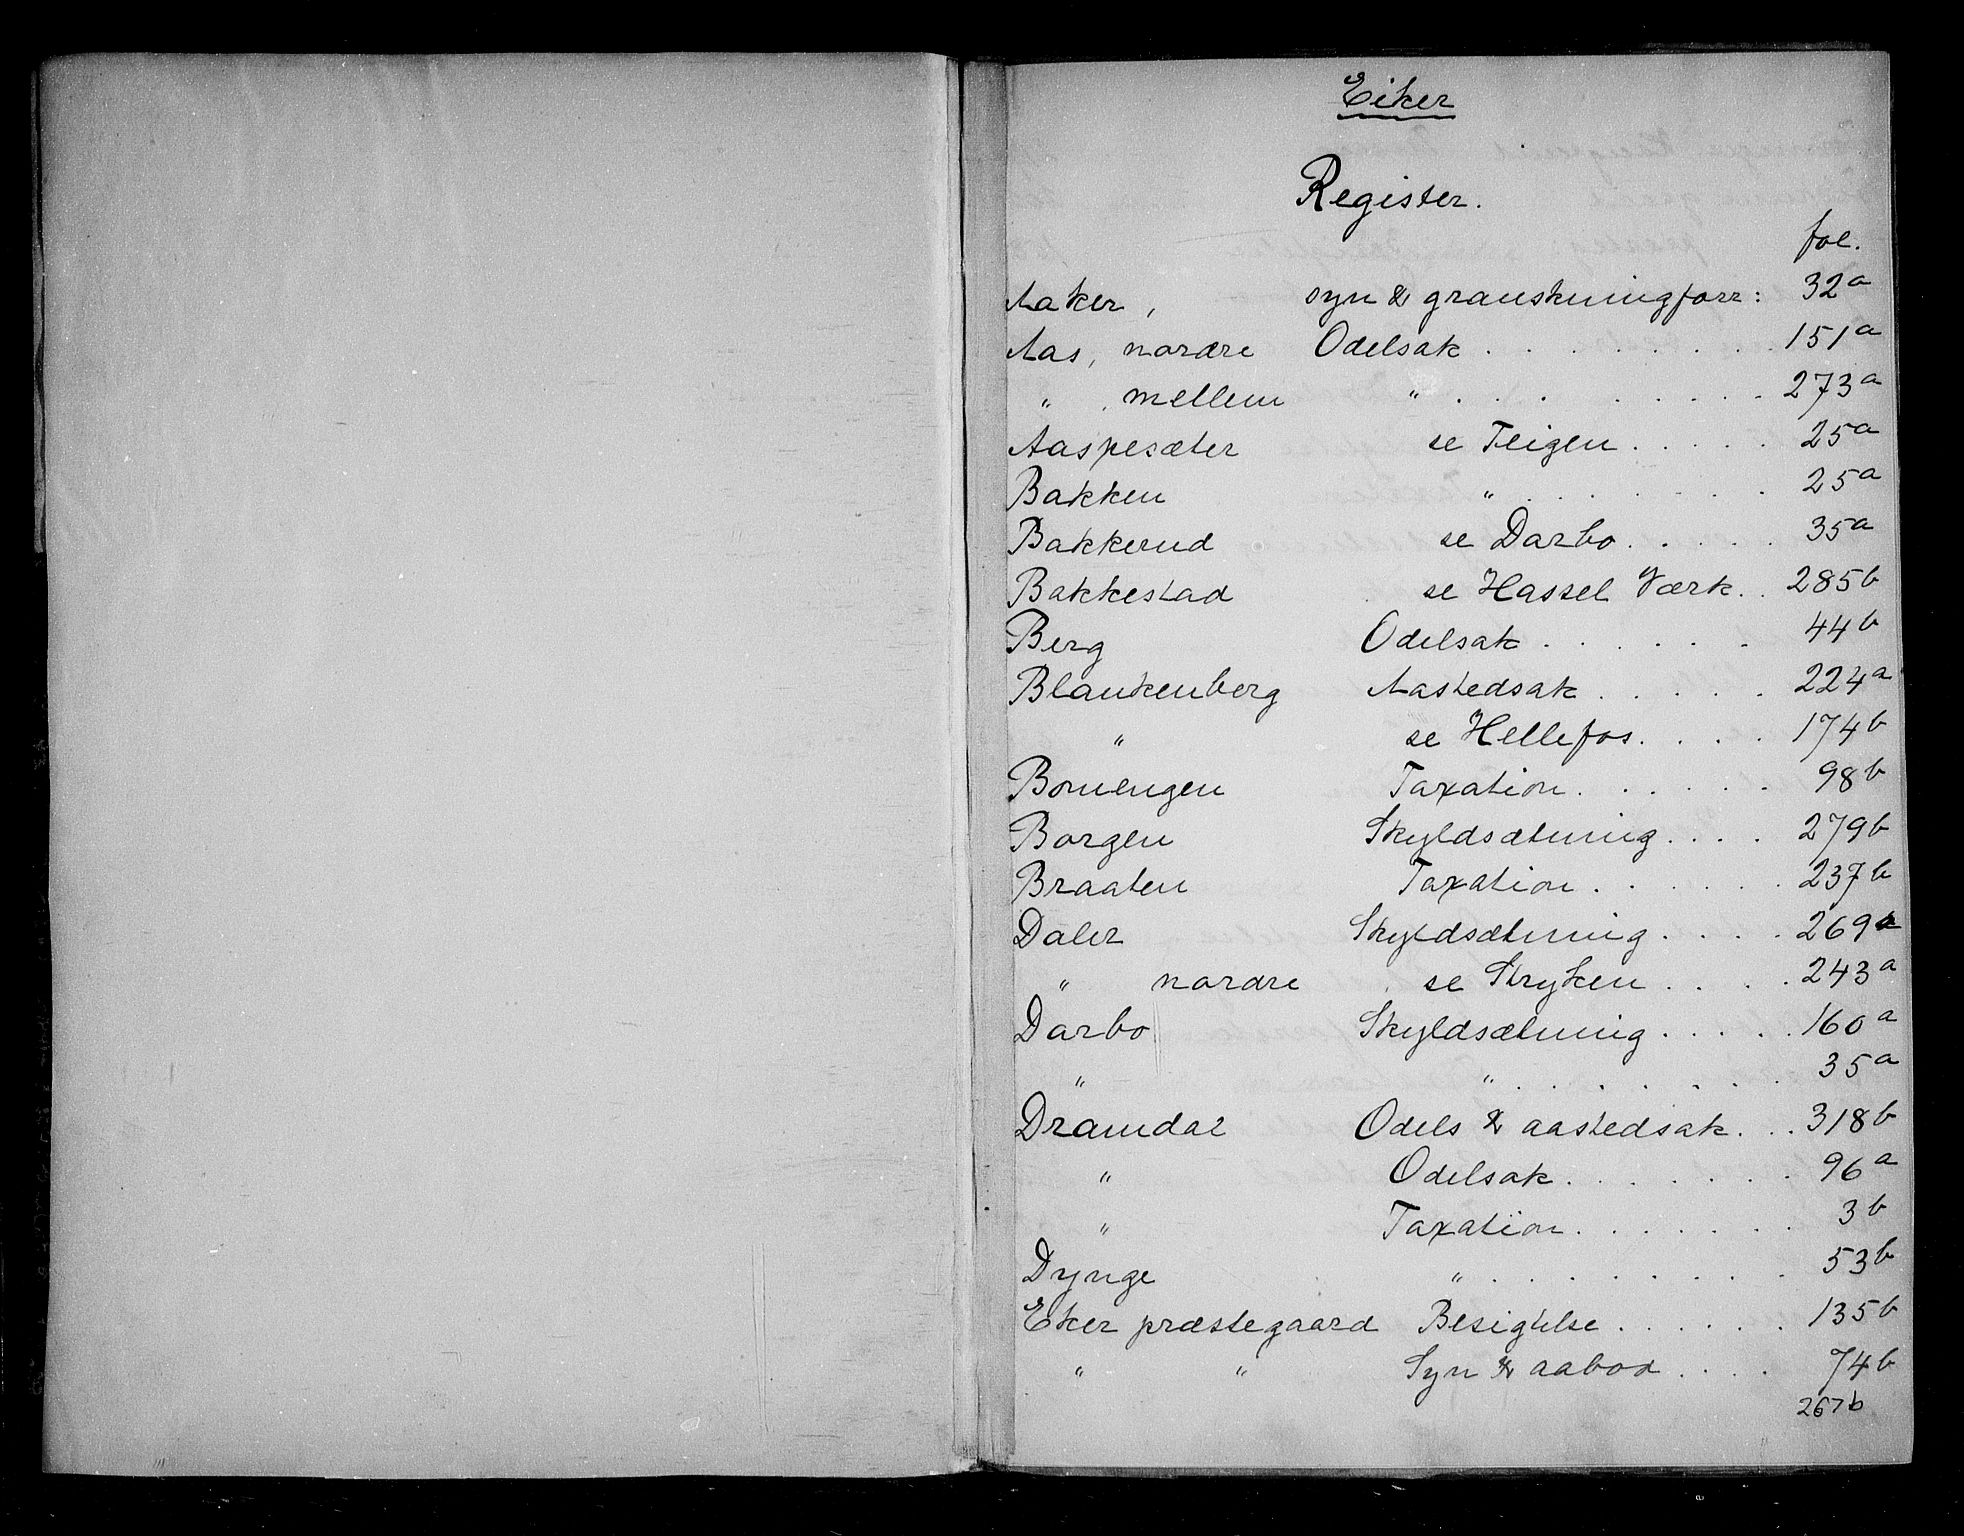 Eiker
Register.
fol.
Aaker, syn & granskningforr: 32a
Aas, nordre Odelsak . . . . . . . . 151a
" , mellem " . . . . . . . . 273a
Aaspesæter se Teigen . . . . 25a
Bakken " . . . . . . . 25a
Bakkerud se Darbo . . . . . 35a
Bakkestad se Hassel Værk . . 285b
Berg Odelsak . . . . . . 44b
Blankenberg Aastedsak . . . . . 224a
" se Hellefos. . . . . 174b
Bomengen Taxation . . . . . . 98b
Borgen Skyldsætning . . . . 279b
Braaten Taxation . . . . . . 237b
Daler Skyldsætning . . . . 269a
" nordre se Stryken . . . . 243a
Darbo Skyldsætning . . . . . 160a
" " . . . . . . . 35a
Dramdal Odels & aastedsak . . . 318b
" Odelsak . . . . . . . 96a
" Taxation . . . . . . . 3b
Dynge " . . . . . . . . 53b
Eker præstegaard Besigtelse . . . . . . 135b
" " Syn & aabod . . . . 74b
267b